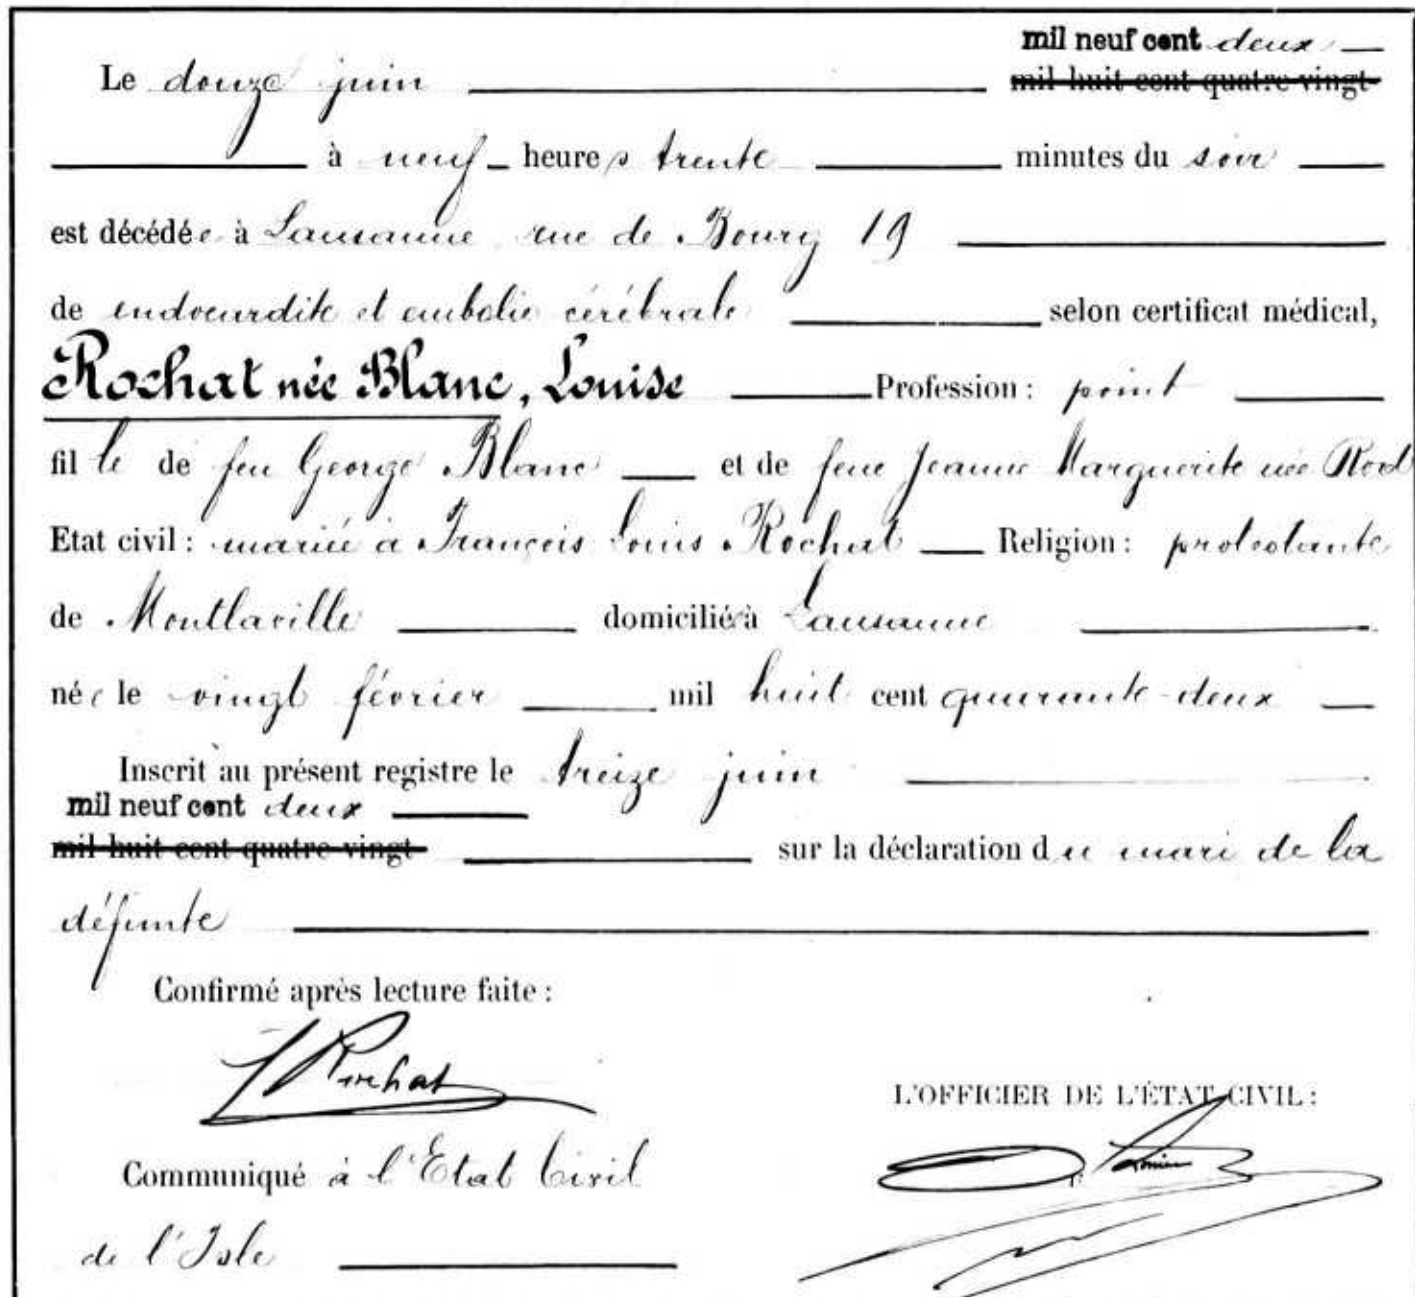 mil neuf cent deux
Le douze juin mil huit cent quatre-vingt
à neuf heures trente minutes du soir
est décédée à Lausanne rue de Bourg 19
de endocardite et embolie cérébrale selon certificat médical,
Rochat née Blanc, Louise Profession : point
fille de feu George Blanc et de feue Jeanne Marguerite née Rod
Etat civil : mariée à François Louis Rochat Religion : protestante
de Montlaville domiciliée à Lausanne
née le vingt février mil huit cent quarante-deux
Inscrit au présent registre le treize juin
mil neuf cent deux
mil huit cent quatre-vingt sur la déclaration du mari de la
défunte
Confirmé après lecture faite :
Rochat
L'OFFICIER DE L'ÉTAT CIVIL :
Communiqué à l'Etat Civil
de l'Isle